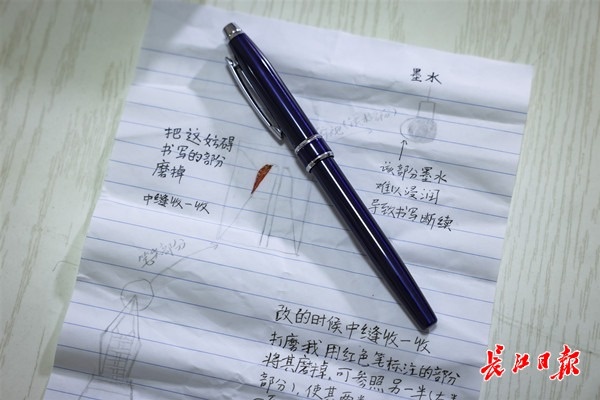 墨水
把这妨碍
书写的部分
磨掉
中缝收一收
该部分墨水
难以浸润
导致书写断续
改的时候中缝收一收
打磨我用红色笔标注的部分
将其磨掉,可参照另一半(左半
部分),使其两
长江日报